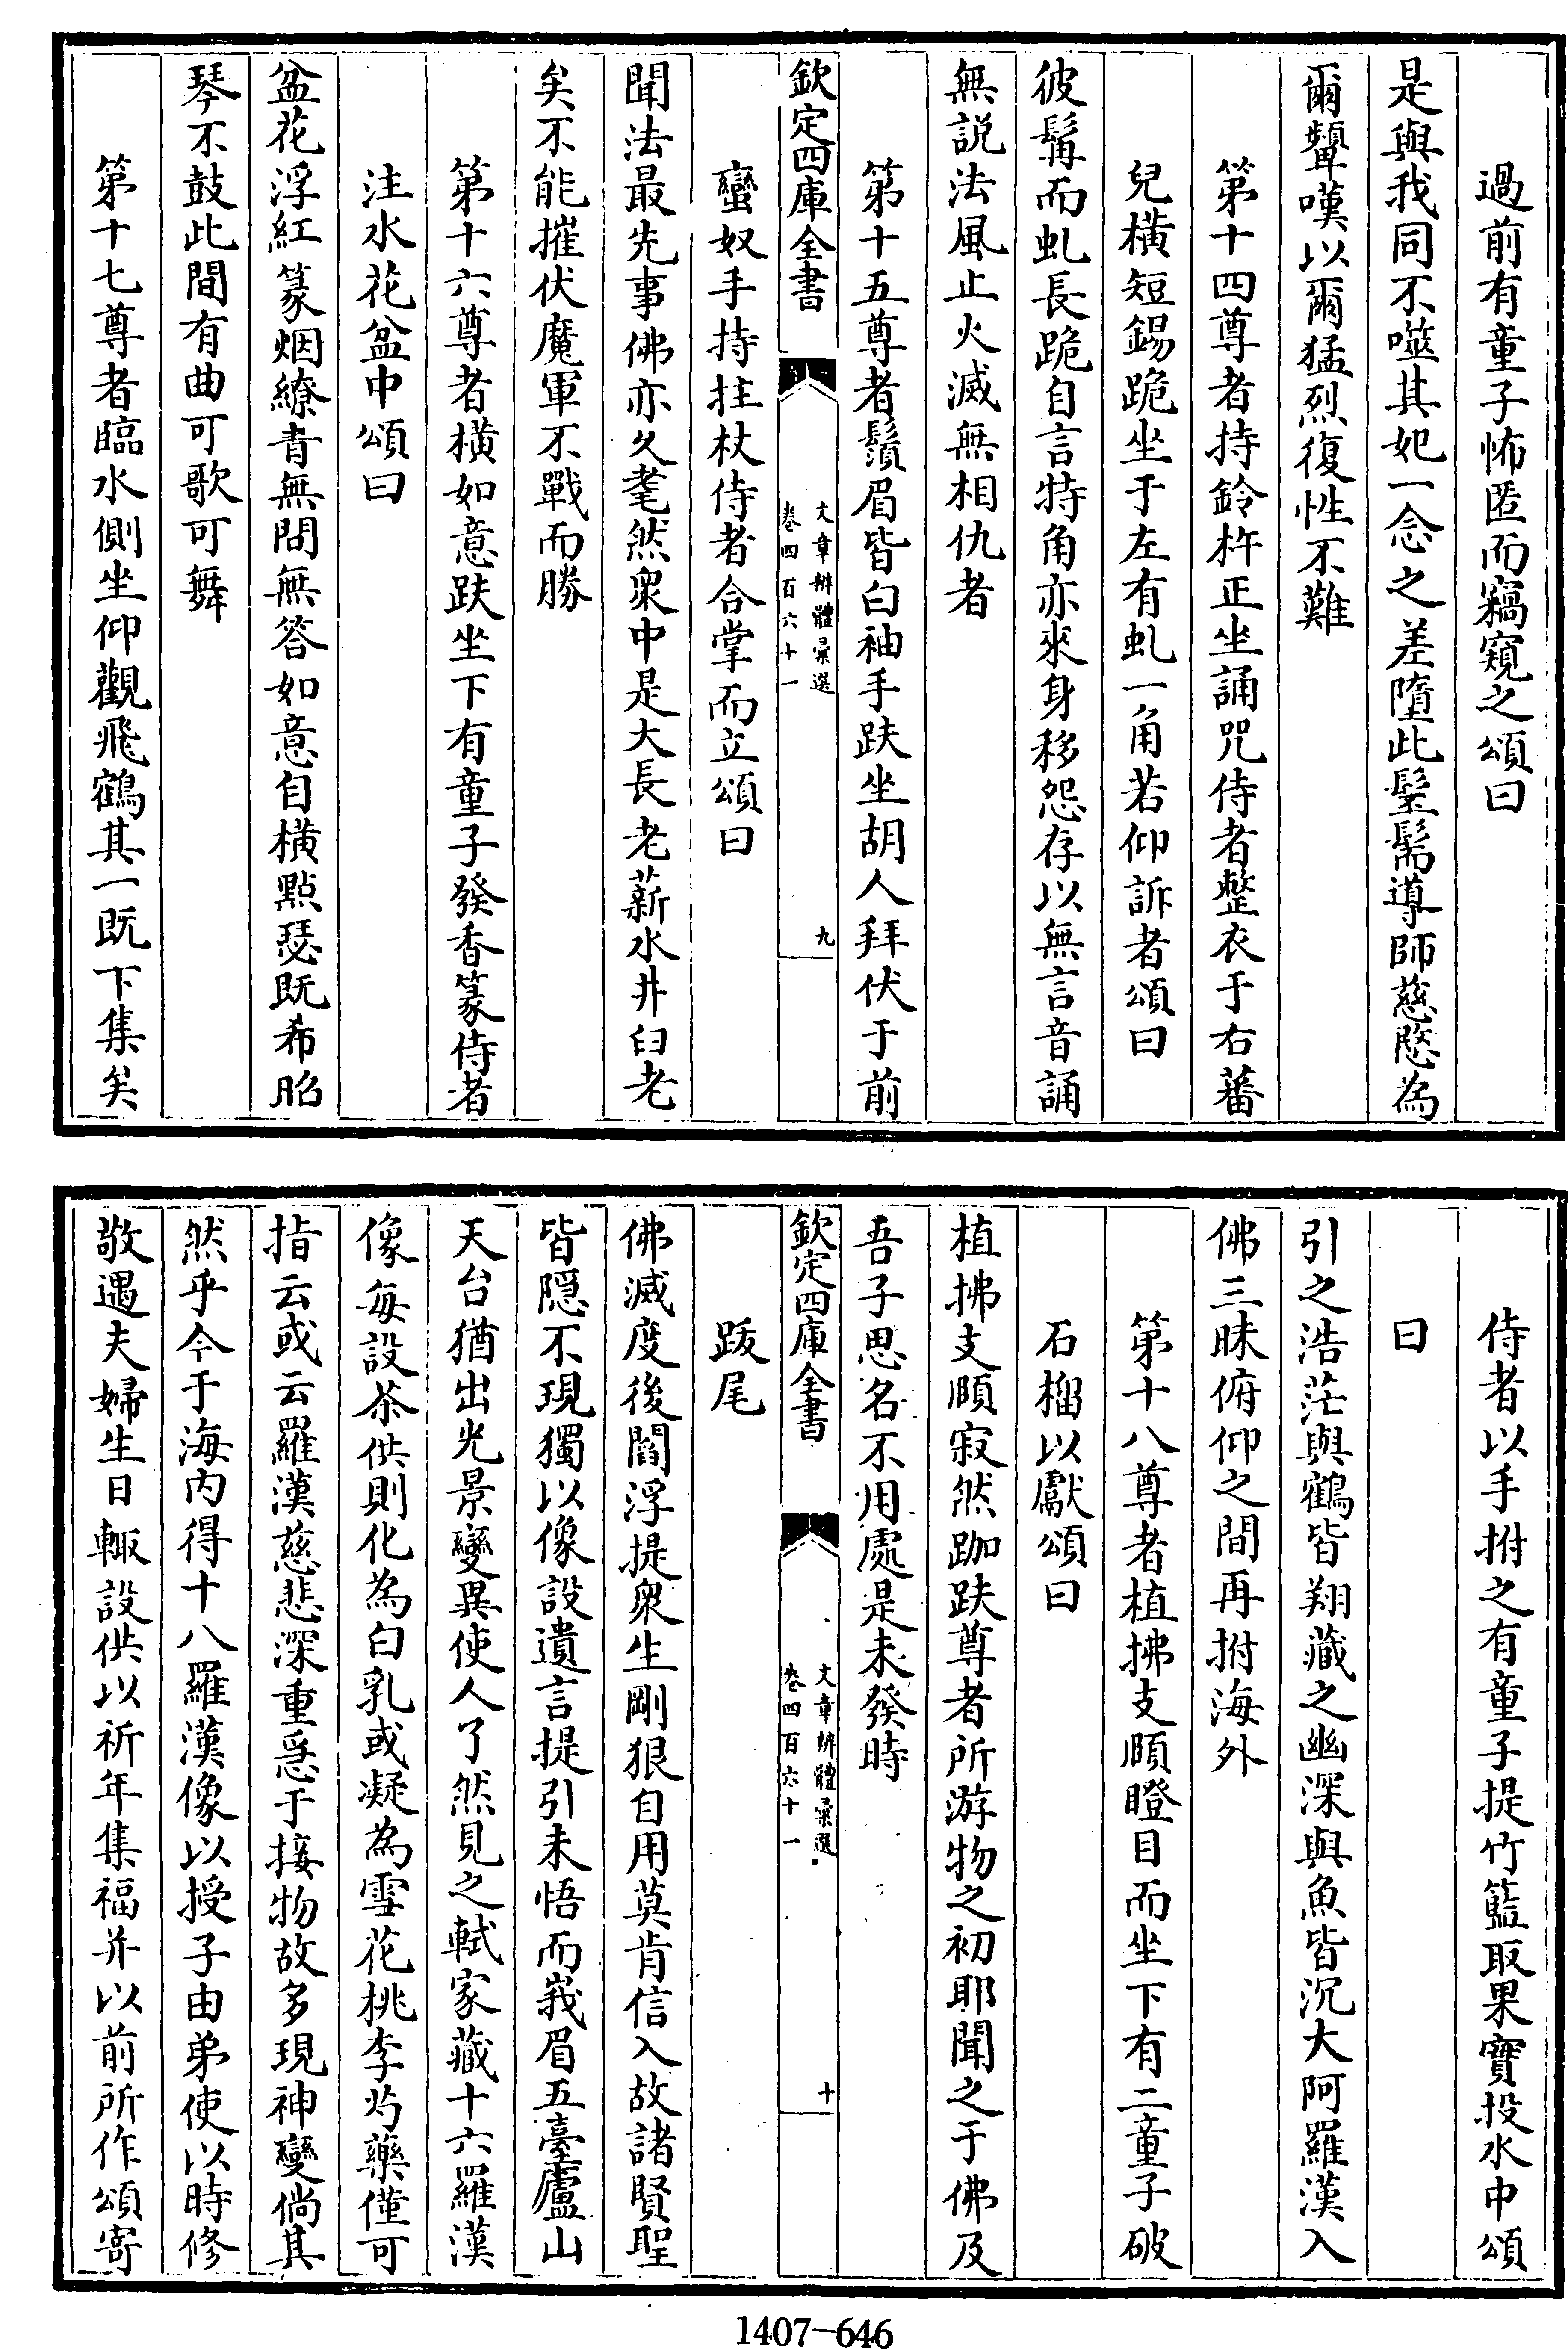 過前有童子怖匿而竊窺之頌曰
是與我同不噬其妃一念之差墮此髬髵導師慈愍為
爾顰嘆以爾猛烈復性不難
第十四尊者持鈴杵正坐誦咒侍者整衣于右蕃
兒橫短錫跪坐于左有虬一角若仰訴者頌曰
彼髯而虬長跪自言特角亦來身移怨存以無言音誦
無説法風止火滅無相仇者
第十五尊者鬚眉皆白袖手趺坐胡人拜伏于前
欽定四庫全書
文章辨體彙選
卷四百六十一
九
蠻奴手持拄杖侍者合掌而立頌曰
聞法最先事佛亦久耄然衆中是大長老薪水井臼老
矣不能摧伏魔軍不戰而勝
第十六尊者横如意趺坐下有童子發香篆侍者
注水花盆中頌曰
盆花浮紅篆烟繚青無問無答如意自横點瑟既希昭
琴不鼓此間有曲可歌可舞
第十七尊者臨水側坐仰觀飛鶴其一既下集矣
侍者以手拊之有童子提竹籃取果實投水中頌
曰
引之浩茫與鶴皆翔藏之幽深與魚皆沉大阿羅漢入
佛三昧俯仰之間再拊海外
第十八尊者植拂支頤瞪目而坐下有二童子破
石榴以獻頌曰
植拂支頤寂然跏趺尊者所游物之初耶聞之于佛及
吾子思名不用處是未發時
欽定四庫全書
文章辨體彙選
卷四百六十一
十
跋尾
佛滅度後閻浮提衆生剛狠自用莫肯信入故諸賢聖
皆隱不現獨以像設遺言提引未悟而峩眉五臺廬山
天台猶出光景變異使人了然見之軾家藏十六羅漢
像每設茶供則化為白乳或凝為雪花桃李芍藥僅可
指云或云羅漢慈悲深重急于接物故多現神變倘其
然乎今于海内得十八羅漢像以授子由弟使以時修
敬遇夫婦生日輙設供以祈年集福并以前所作頌寄
1407-646